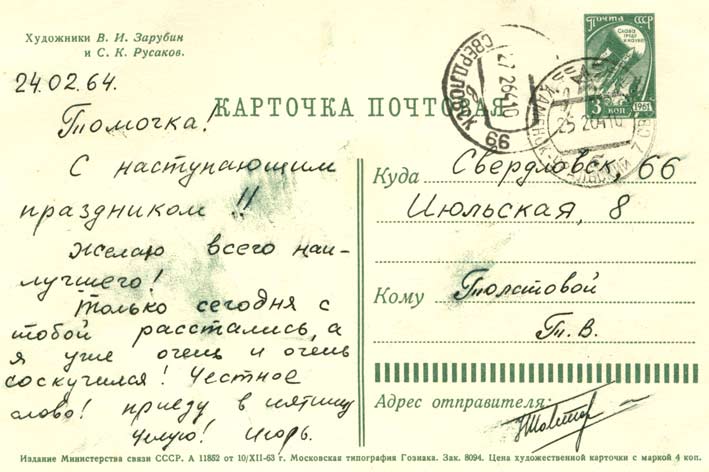 Художники В. И. Зарубин
и С. К. Русаков.
24.02.64.
КАРТОЧКА ПОЧТОВАЯ
ПОЧТА СССР
СЛАВА
ТРУДУ
И НАУКЕ!
3 КОП
1961
СВЕРДЛОВСК
66
25 2 64 10
Томочка!
С наступающим
праздником!!
Желаю всего наи-
лучшего!
Только сегодня с
тобой расстались, а
я уже очень и очень
соскучился! Честное
слово! приеду в пятницу
Целую! Игорь.
Куда Свердловск, 66
Июльская, 8
Кому Толстовой
Т. В.
Адрес отправителя:
Издание Министерства связи СССР. А 11852 от 10/XII-63 г. Московская типография Гознака. Зак. 8094. Цена художественной карточки с маркой 4 коп.